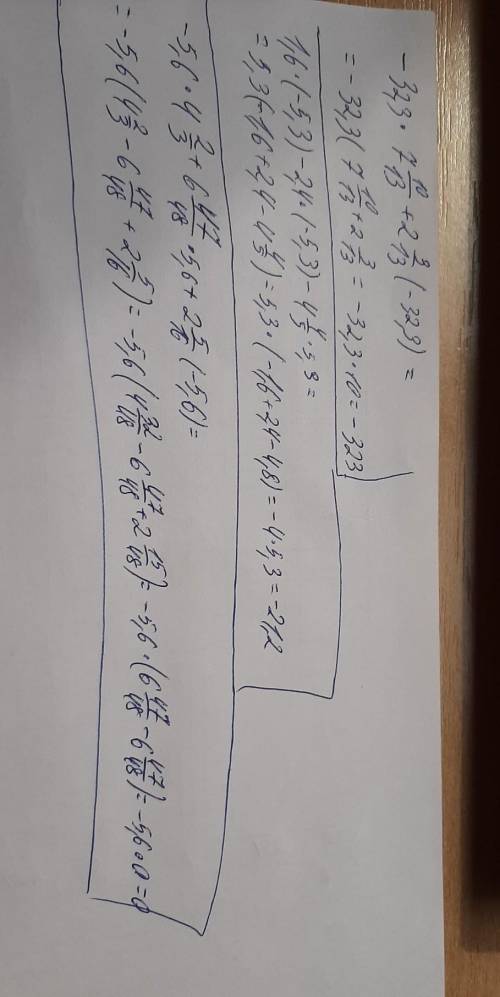 -32,3 · 7 10/13 + 2 3/13 (-32,3) =
= -32,3 (7 10/13 + 2 3/13 = -32,3 · 10 = -323
1,6 · (-5,3) - 2,4 · (-5,3) - 4 4/5 · 5,3 =
= 5,3 (-1,6 + 2,4 - 4 4/5) = 5,3 · (-1,6 + 2,4 - 4,8) = -4 · 5,3 = -21,2
-5,6 · 4 2/3 + 6 47/48 · 5,6 + 2 5/16 (-5,6) =
= -5,6 (4 2/3 - 6 47/48 + 2 5/16) = -5,6 (4 32/48 - 6 47/48 + 2 15/48) = -5,6 · (6 47/48 - 6 47/48) = -5,6 · 0 = 0